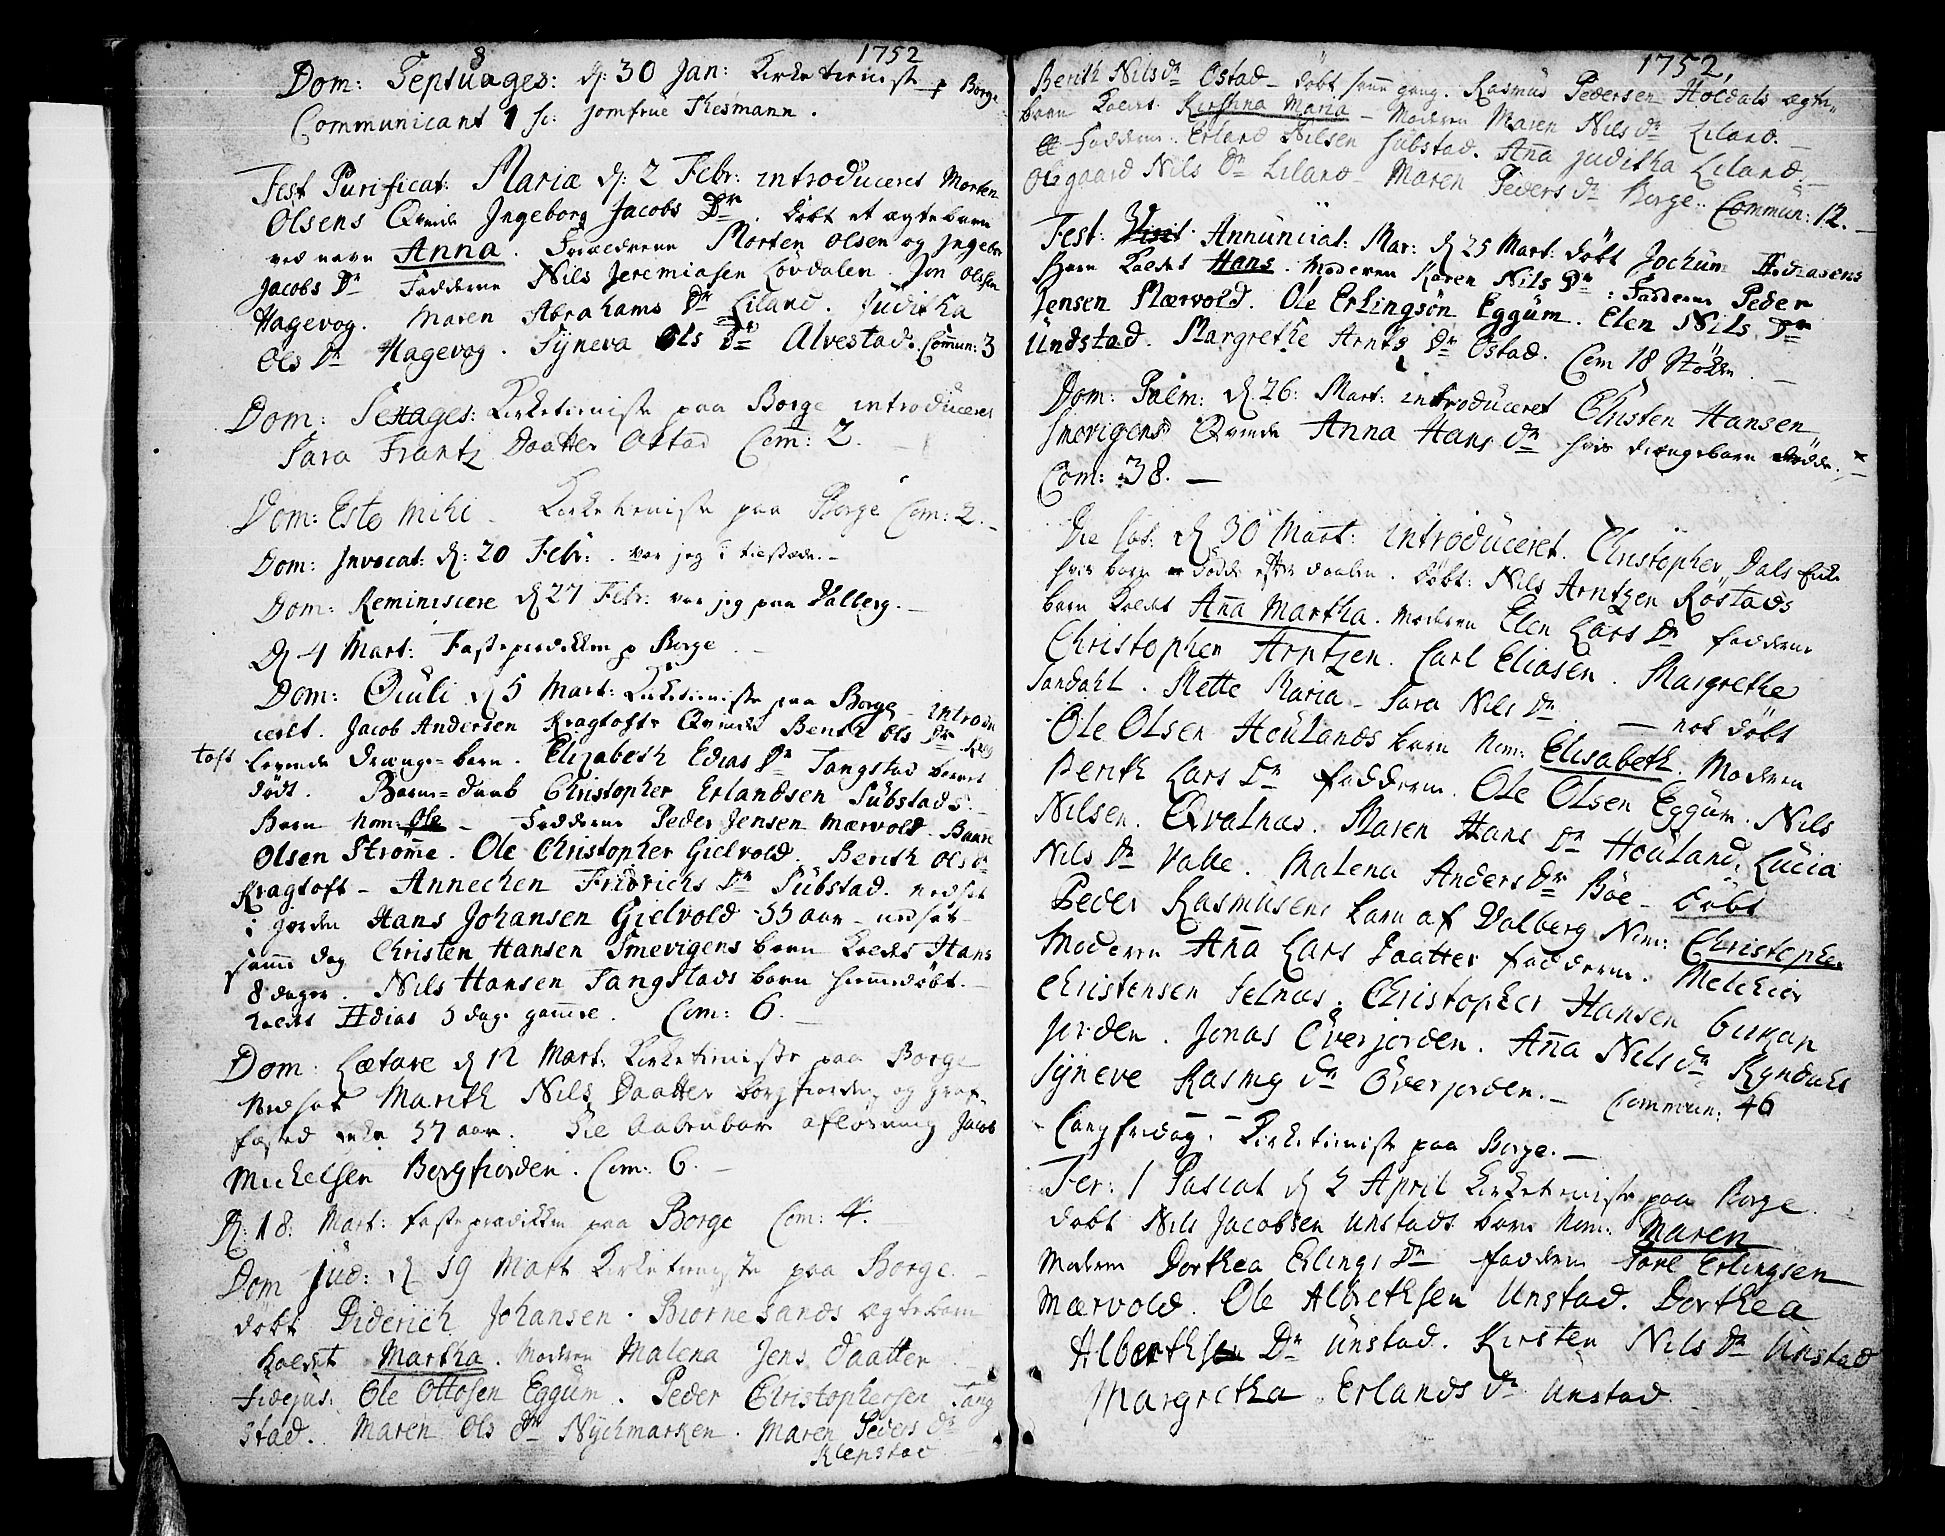 8 1752
Dom: Septuages: d: 30 Jan: Kirketieniste p Borge
Communicant 1 sc: Jomfrue Thesmann.
Fest Purificat: Mariæ d: 2 Febr: introduceret Morten
Olsens Qvinde Ingeborg Jacobs Dr. Døbt et ægte barn
ved navn Anna. Forældrene Morten Olsen og Ingebr
Jacobs Dr Fadderne Nils Jeremiasen Løvdalen. Jon Olsen
Hagevog. Maren Abrahams Dr Liland. Juditha
Ols Dr Hagevog. Syneva Ols Dr Alvestad. Commun: 3
Dom: Sexages: Kirketieniste paa Borge introduceret
Sara Frantz Daatter Ostad Com: 2.
Dom: Esto mihi Kirketieniste paa Borge Com: 2.
Dom: Invocat: d: 20 Febr: var jeg i
Dom: Reminiscere d 27 Febr: var jeg paa Valberg.
d 4 Mart: Fasteprædiken p Borge
Dom: Oculi d 5 Mart: Kirketieniste paa Borge introdu
ceret. Jacob Andersen Kragtofts Qvinde Berith Ols Dr
toft levende drænge-barn. Elizabeth Edias Dr Tangstad barnet
dødt. Barne-daab Christopher Erlandsen Substads
Barn Nom: Ole Fadderne Peder Jensen Mærvold. Baar
Olsen Strømme. Ole Christopher Gielvold. Berith Ols dr
Kragtoft Annechen Fridrichs Dr Substad. nedsat
i jorden Hans Johansen Gielvold 55 aar nedsat
samme dag Christen Hansen Smevigens barn kaldet Hans
8 dager. Nils Hansen Tangstads barn hiemmedøbt.
kaldet Hdias 3 dage gammel. Com: 6.
Dom: Lætare d 12 Mart: Kirketieniste paa Borge
Nedsat Marith Nils Daatter Borgfiorden og
57 aar. Til Aabenbare afløsning Jacob
Michelsen Borgfiorden. Com: 6.
d: 18: Mart: fasteprædiken paa Borge Com: 4.
Dom Jud: d 19 Mart Kirketieniste paa Borge
døbt Diderich Johansen Biørnesands ægtebarn
kaldet Martha. Moderen Malena Jens Daatter
Fidejus: Ole Ottosen Eggum. Peder Christophersen Tang
stad. Maren Ols dr Nychmarken. Maren Peders Dr
Klepstad
1752,
Berith Nils dr Ostad døbt gang. Rasmus Pedersen Holdals ægte
barn kaldet Kirstina Maria Moderen Maren Nils dr Liland.
Fadderne. Erland Nilsen Substad. Anna Juditha Liland.
Olegaard Nils Dr Liland Maren Peders dr Borge. Commun: 12.
Fest: Visit. Annunciat: Mar: d 25 Mart: døbt Jochum Hdiasens
Barn kaldet Hans. Moderen Karen Nils Dr: Fadderne Peder
Jensen Mærvold. Ole Erlingsøn Eggum. Elen Nils Dr
Undstad. Margrethe Arnts Dr Ostad. Com 18 Støkken
Dom: Palm: d 26: Mart: introduceret Christen Hansen
Smevigens Qvinde Anna Hans dr hvis drængebarn døde.
Com: 38.
Die d 30 Mart: introduceret. Christopher Dals
hvis barn døde efter daaben. døbt: Nils Arntzen Røstads
barn kaldet Anna Martha. Moderen Elen Lars Dr fadderne
Christopher Arntzen. Carl Eliasen. Margrethe
Sandahl. Mette Maria Sara Nils Dr nok døbt
Ole Olsen Houlands barn Nom: Elisabeth. Moderen
Berith Lars Dr fadderne. Ole Olsen Eggum. Nils
Nilsen. Qvalnæs. Maren Hans Dr Houland. Lucia
Nils Dr Valle. Malena Anders Dr Bøe døbt
Peder Rasmusens barn af Valberg Nom: Christopher
Moderen Anna Lars Daatter fadderne. Melchior
Christensen Selnæs. Christopher Hansen
jorden. Jonas Overjorden. Anna Nils dr Ryndahl
Syneve Rasmus dr Overjorden. Commun: 46
Langfredag. Kirketieniste paa Borge.
Fer: 1 Pascat d 2 April Kirketieniste paa Borge.
døbt Nils Jacobsen Unstads barn Nom: Maren
Moderen Dorthea Erlings Dr fadderne Tore Erlingsen
Mærvold. Ole Albrethsen Unstad. Dorthea
Alberthsen Dr Unstad. Kirsten Nils Dr Unstad
Margretha Erlands dr Unstad.